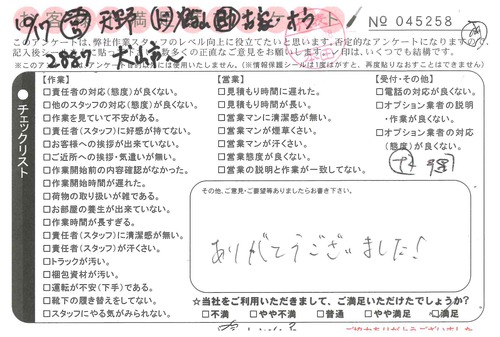 No 045258
このアンケートは、弊社作業スタッフのレベル向上に役立てたいと思います。否定的なアンケートになりますので、
数多くの正直なご意見をお願いします。チェック印は、いくつでも結構です。
このアンケートは 目的以外には使用いたしません。(情報保護シールは1度はがすと、再度貼りなおすことはできません)
チェックリスト
【作業】
□責任者の対応(態度)が良くない。
□他のスタッフの対応(態度)が良くない。
□作業を見ていて不安がある。
□責任者(スタッフ)に好感が持てない。
□お客様への挨拶が出来ていない。
□ご近所への挨拶・気遣いが無い。
□作業開始前の内容確認がなかった。
□作業開始時間が遅れた。
□荷物の取り扱いが雑である。
□お部屋の養生が出来ていない。
□作業時間が長すぎる。
□責任者(スタッフ)に清潔感が無い。
□責任者(スタッフ)が汗くさい。
□トラックが汚い。
□梱包資材が汚い。
□運転が不安(下手)である。
□靴下の履き替えをしてない。
□スタッフにやる気がみられない。
【営業】
□見積もり時間に遅れた。
□見積もり時間が長い。
□営業マンに清潔感が無い。
□営業マンが煙草くさい。
□営業マンが汗くさい。
□営業態度が良くない。
□営業の説明と作業が一致してない。
【受付・その他】
□電話の対応が良くない。
□オプション業者の説明
・作業が良くない。
□オプション業者の対応
(態度)が良くない。
その他、ご意見・ご要望等ありましたらお書き下さい。
ありがとうございました!
☆当社をご利用いただきまして、ご満足いただけたでしょうか?
□不満 □やや不満 □普通 □やや満足 □満足
ご協力ありがとうございました